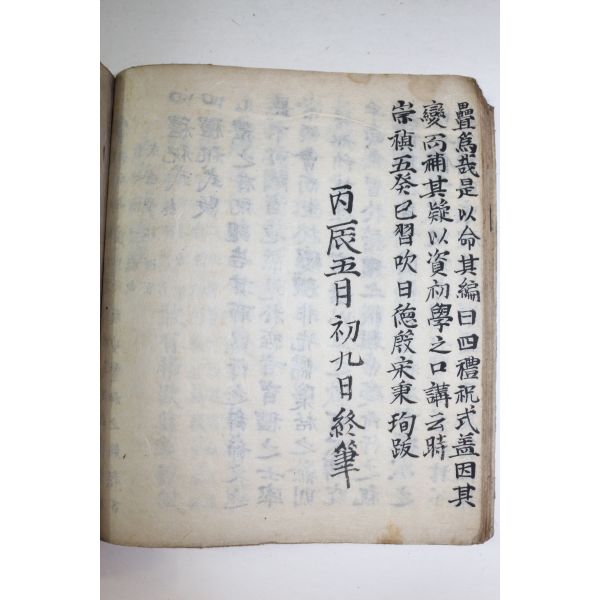 疊爲哉是以命其編曰四禮祝式盖因其
變而補其疑以資初學之口講云時
崇禎五癸巳習吹日德殷宋秉珣跋
丙辰五月初九日終筆